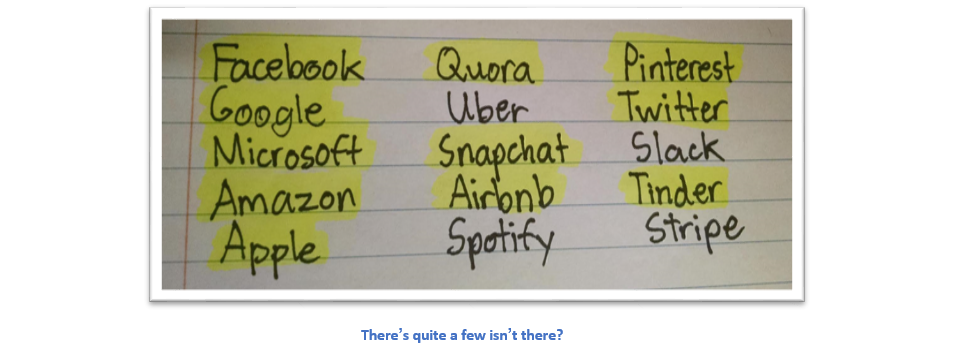 Facebook
Google
Microsoft
Amazon
Apple
Quora
Uber
Snapchat
Airbnb
Spotify
Pinterest
Twitter
Slack
Tinder
Stripe
There's quite a few isn't there?